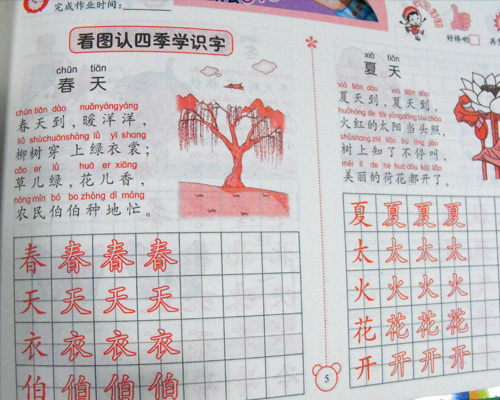 完成作业时间:
看图认四季学识字
chūn tiān
春 天
chūn tiān dào nuǎnyángyáng
春天到,暖洋洋,
liǔ shùchuānshàng lǜ yī shang
柳树穿上绿衣裳;
cǎo er lǜ huā er xiāng
草儿绿,花儿香,
nóng mín bó bo zhòng dì máng
农民伯伯种地忙。
春春春春
天天天天
衣衣衣衣
伯伯伯伯
好棒哟
xià tiān
夏 天
xià tiān dào xià tiān dào
夏天到,夏天到,
huǒhóng de tài yángdāng tóu zhào
火红的太阳当头照,
shùshàng zhī liǎo bù tíng jiào
树上知了不停叫,
měi lì de hé huā dōu kāi le
美丽的荷花都开了。
夏夏夏夏
太太太太
火火火火
花花花花
开开开开
5